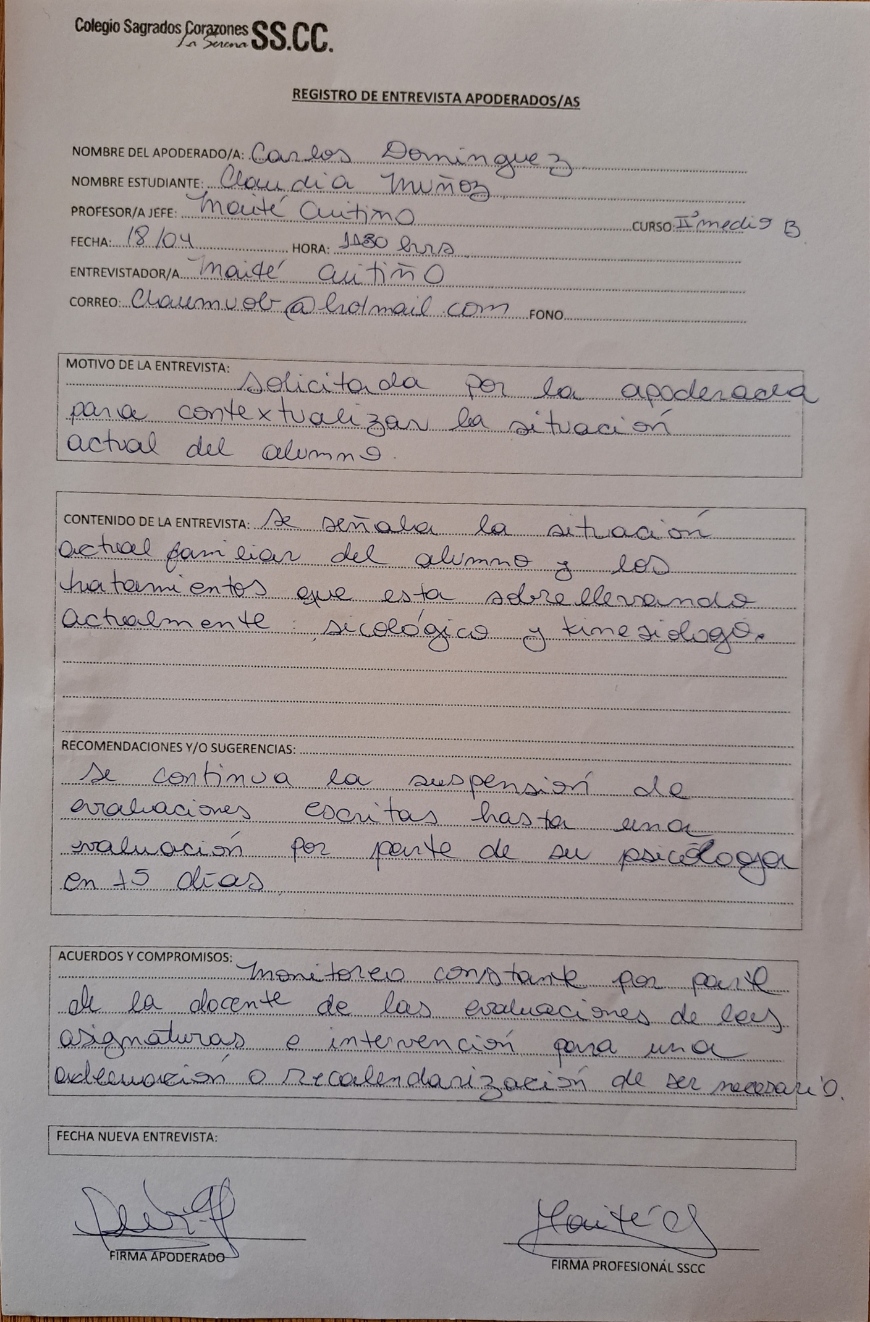 Colegio Sagrados Corazones SS.CC.
La Serena
REGISTRO DE ENTREVISTA APODERADOS/AS
NOMBRE DEL APODERADO/A: Carlos Dominguez
NOMBRE ESTUDIANTE: Claudia Muñoz
PROFESOR/A JEFE: Maité Cutiño CURSO IIº medio B
FECHA: 18/04 HORA: 1130 hrs
ENTREVISTADOR/A Maité Cutiño
CORREO: @hotmail.com FONO
MOTIVO DE LA ENTREVISTA:
Solicitada por la apoderada
para contextualizar la situación
actual del alumno.
CONTENIDO DE LA ENTREVISTA: Se señala la situación
actual familiar del alumno y los
tratamientos que esta sobrellevando
actualmente: sicológico y kinesiologo.
RECOMENDACIONES Y/O SUGERENCIAS:
Se continua la suspensión de
evaluaciones escritas hasta una
evaluación por parte de su psicóloga
en 15 días
ACUERDOS Y COMPROMISOS:
Monitoreo constante por parte
de la docente de las evaluaciones de las
asignaturas e intervención para una
adecuación o recalendarización de ser necesario.
FECHA NUEVA ENTREVISTA:
Maité
FIRMA APODERADO
FIRMA PROFESIONAL SSCC